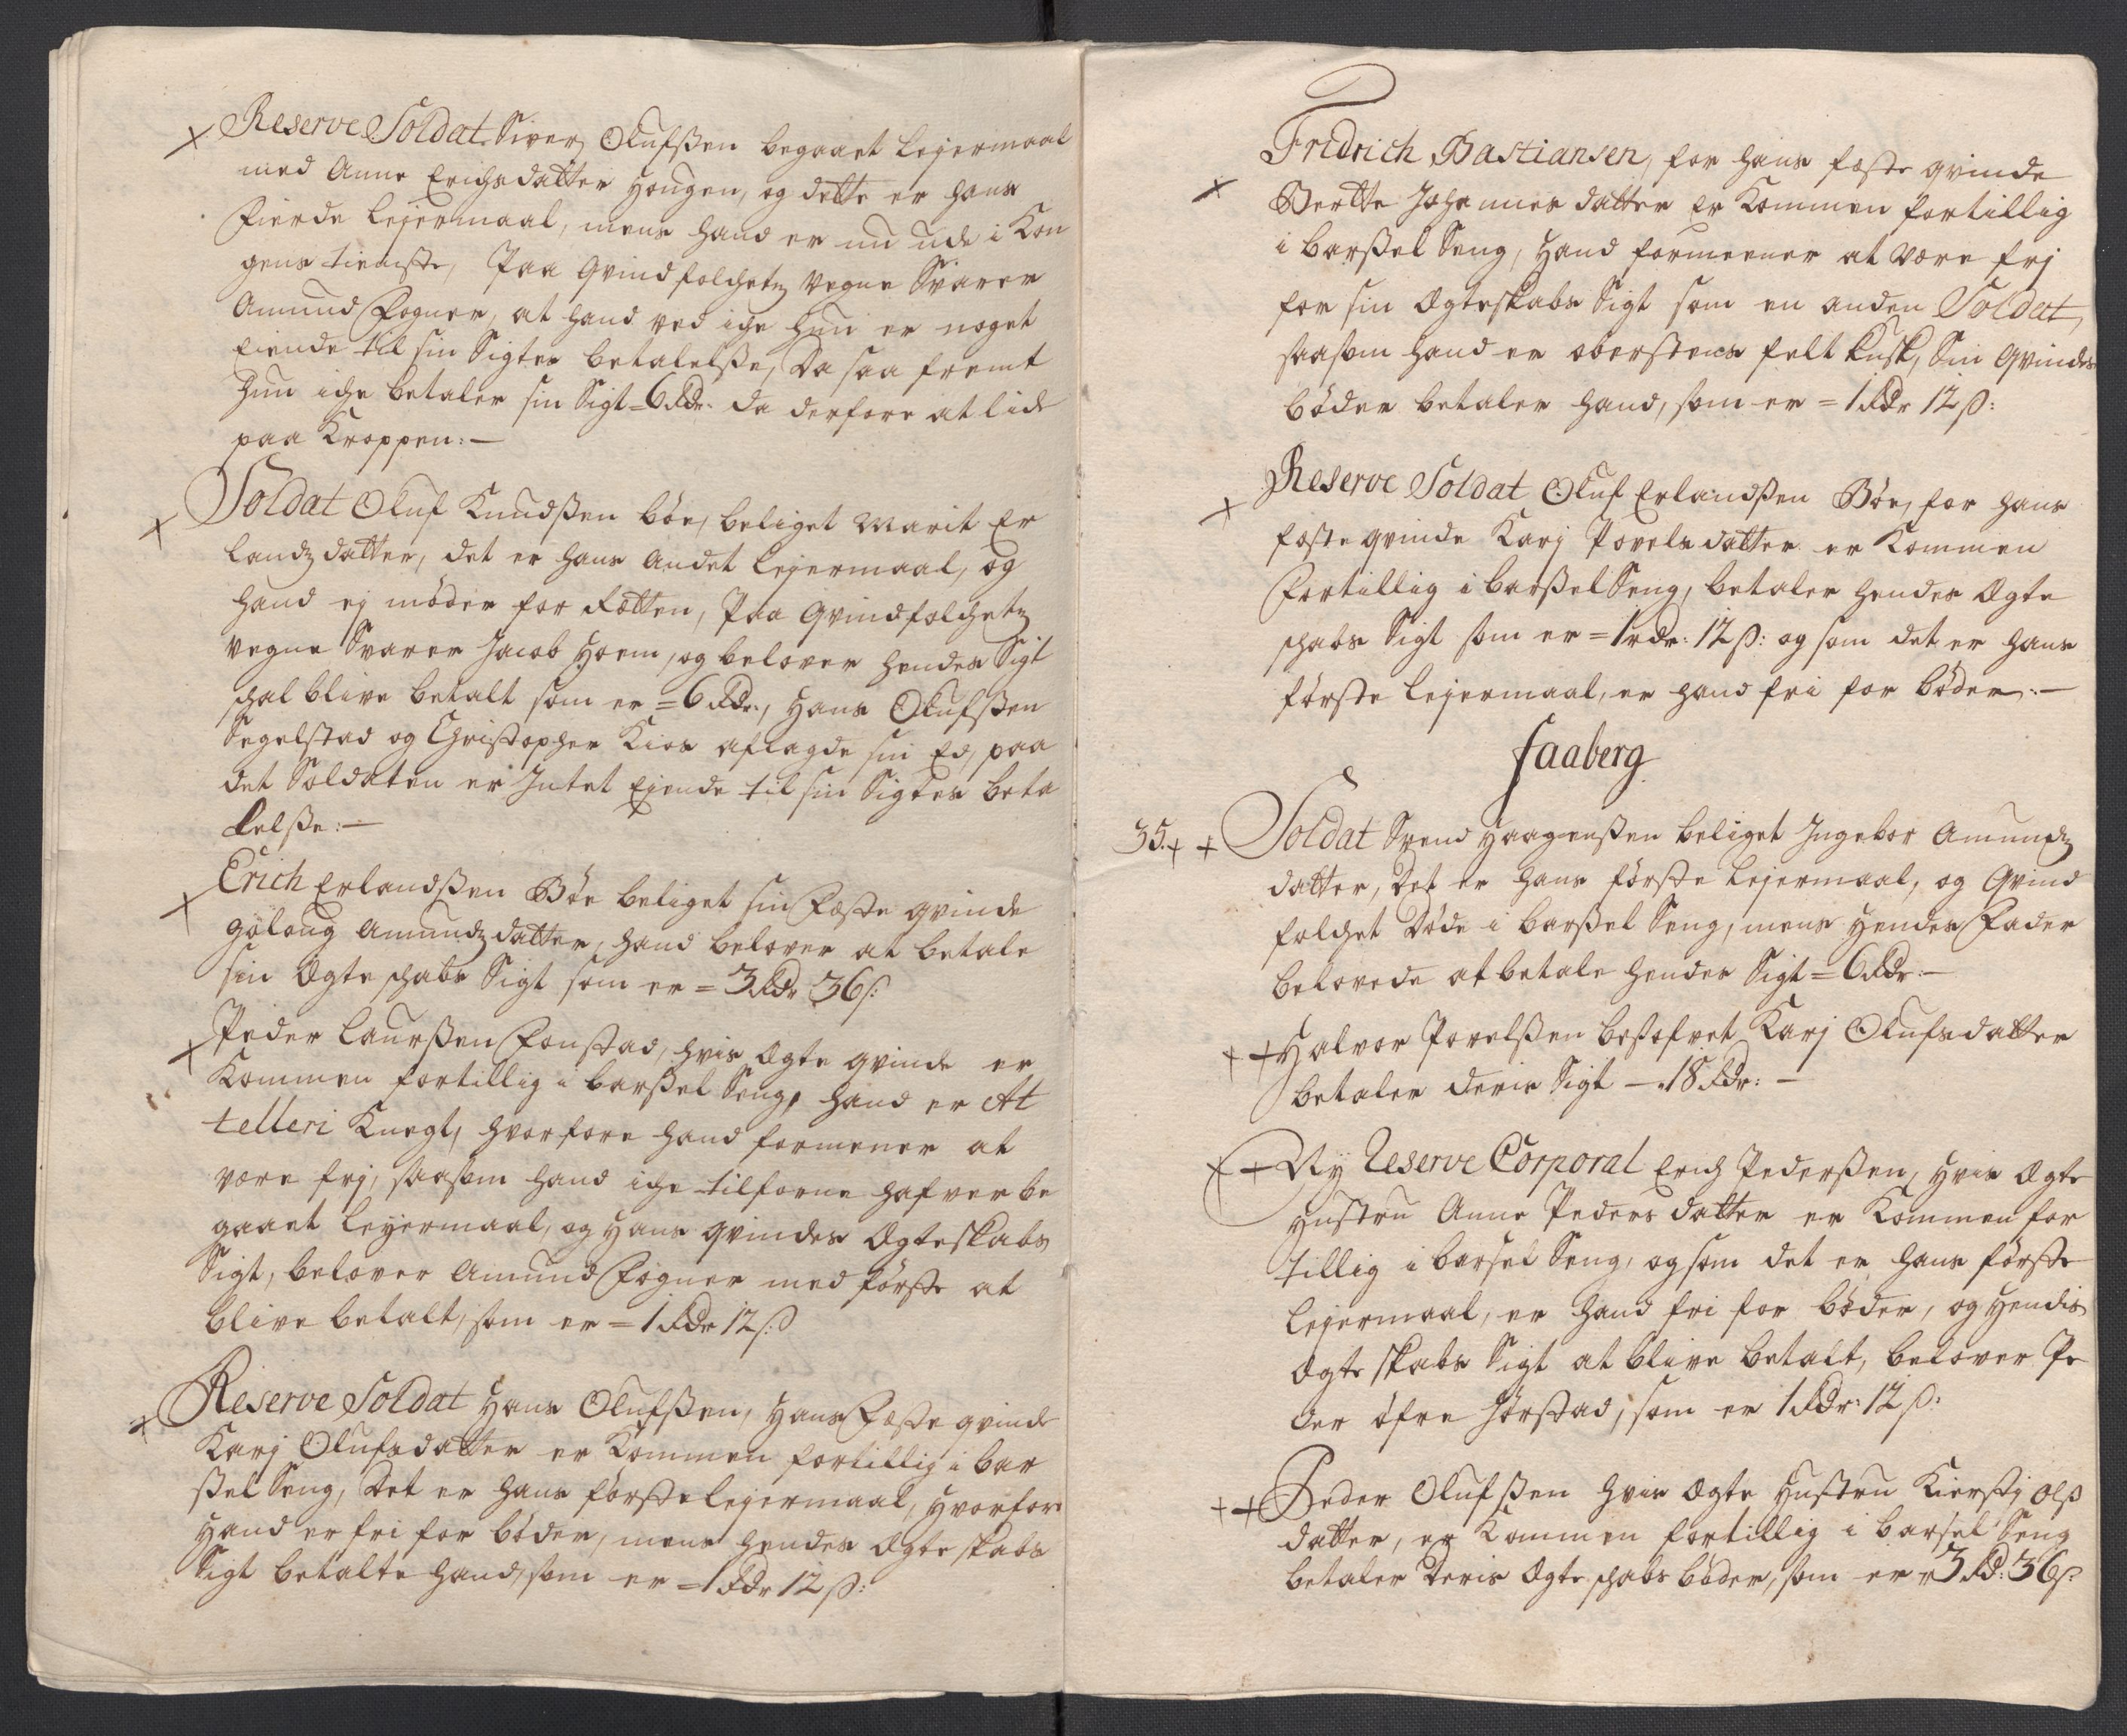 Reserve Soldat Siver Olufsßen begaaet Lejermaal
med Anne Erichsdatter Hougen, og dette er hans
Fierde Lejermaal, mens hand er nu ude i Kon
gens tieniste, Paa Qvindfolchetz Vegne Svarer
Amund Fogner, at hand ved iche hun er noget
Eiende til sin Sigtes betalelße, Da saa fremt
hun iche betaler sin Sigt = 6 Rdr. da derfore at lide
paa Kroppen: —
Soldat Oluf Knudßen böe, beliget Marit Er
landzdatter, det er hans andet Lejermaal, og
hand ej möder for Rætten, Paa Qvindfolchetz
Vegne Svarer Jacob Hoem, og belover hendes Sigt
schal blive betalt som er = 6 Rdr., Hans Olufsßen
Segelstad og Christopher Kios aflagde sin Ed, paa
det Soldaten er Intet Ejende til sin Sigtes beta
lelße: —
Erich Erlandßen Böe beliget sin Fæste qvinde
Gölaug Amundzdatter, hand belover at betale
sin Ægteschabs Sigt som er = 3 Rdr 36 ß:
Peder Laurßen Fonstad, hvis Ægte qvinde er
Kommen fortillig i barßel Seng, hand er At
telleri Knegt, hvorfore hand formener at
være frj, saasom hand iche tilforne hafver be
gaaet Leyermaal, og Hans qvindes Ægteskabs
Sigt, belover Amund Fogner med förste at
blive betalt, som er = 1 Rdr 12 ß:
Reserve Soldat Hans Olufsßen, Hans Fæste qvinde
Karj Olufsdatter er Kommen fortillig i bar
ßel Seng, Det er hans förste lejermaal, Hvorfor
Hand er fri for böder, mens hendes Ægteskabs
Sigt betalte hand, som er = 1 Rdr 12 ß:
Fridrich Bastiansen, for hans fæste qvinde
Bertte Johannes datter er Kommen fortillig
i barßel Seng, Hand formeener at være frj
for sin Ægteskabs Sigt som en anden Soldat,
saasom hand er oberstens felt Kusk, Sin Qvindes
böder betaler hand, som er = 1 Rdr 12 ß:
Reserve Soldat Oluf Erlandßen Böe, for hans
fæste qvinde Karj Povelsdatter er Kommen
Fortillig i barßel Seng, betaler hendes Ægte
schabs Sigt som er = 1 rdr: 12 ß: og som det er hans
förste Lejermaal, er hand fri for böder: —
faaberg
35. Soldat Svend Haagenßen beliget Ingebor Amundz
datter, Det er hans förste Lejermaal, og Qvind
folchet Döde i barßel Seng, mens Hendes Fader
belovede at betale hendes Sigt = 6 Rdr: —
Halvor Povelßen besofvet Karj Olufsdatter
betaler deris Sigt — 18 Rdr: —
Ny Reserve Corporal Erich Pederßen, Hvis Ægte
Hustru Anne Peders datter er Kommen for
tillig i barsel Seng, og som det er hans förste
Lejermaal, er hand fri for böder, og Hendis
Ægteskabs Sigt at blive betalt, belover Pe
der öfre Jörstad, som er 1 Rdr: 12 ß:
Peder Olufsßen hvis Ægte Hustru Kierstj Olß
datter, er Kommen fortillig i barsel Seng
betaler Deris Ægteschabs böder, som er = 3 Rd: 36 ß: